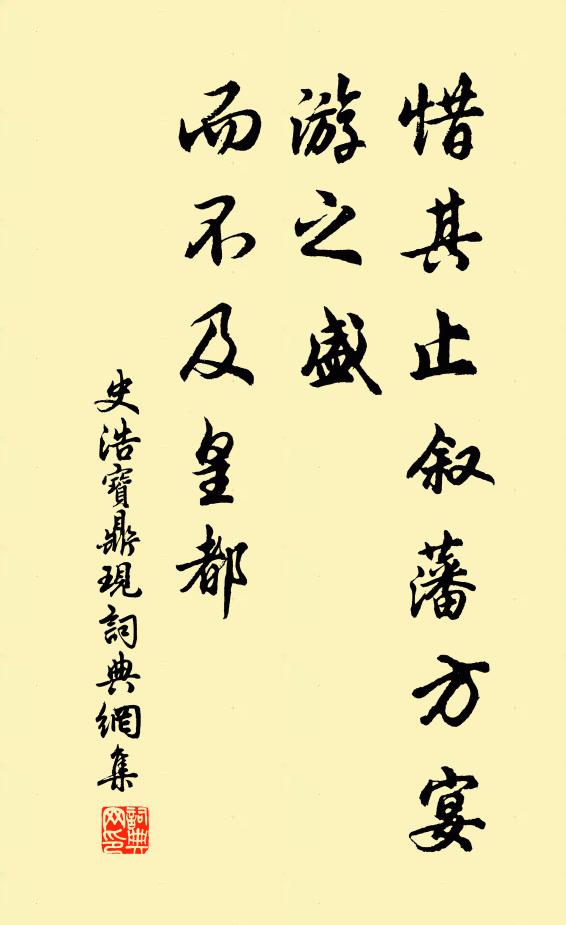 惜其止叙藩方宴
游之盛
而不及皇都
史浩寶鼎現詞典網集
詞典网印